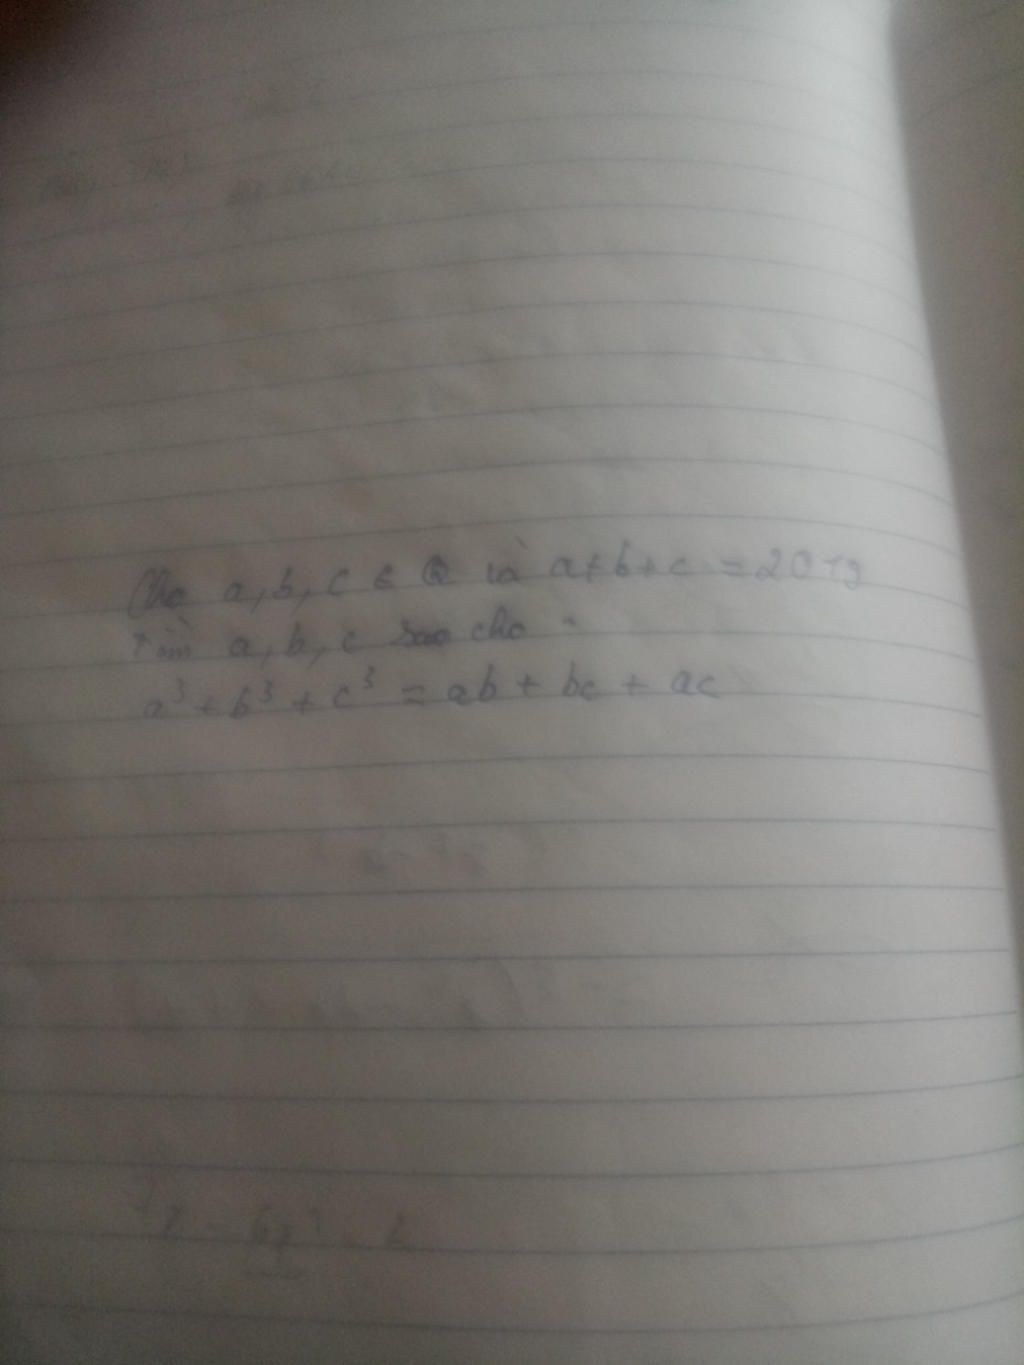 Cho a, b, c ∈ Q và a+b+c = 2019
Tìm a, b, c sao cho
a³ + b³ + c³ = ab + bc + ac